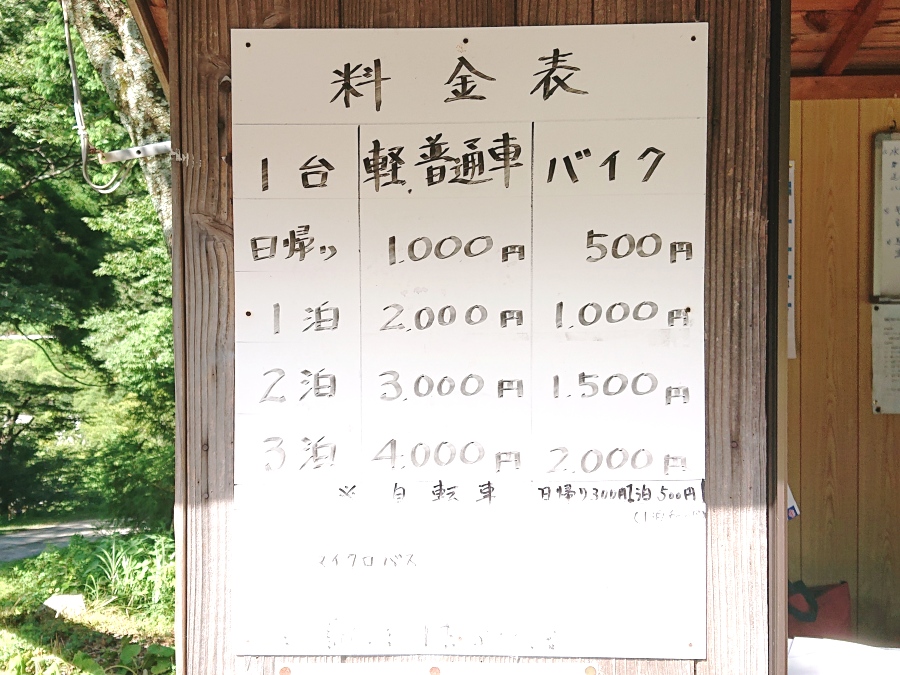 料金表
1台 軽.普通車 バイク
日帰り 1.000円 500円
1泊 2,000円 1.000円
2泊 3,000円 1.500円
3泊 4,000円 2,000円
※ 自転車 日帰り300円 1泊500円
マイクロバス